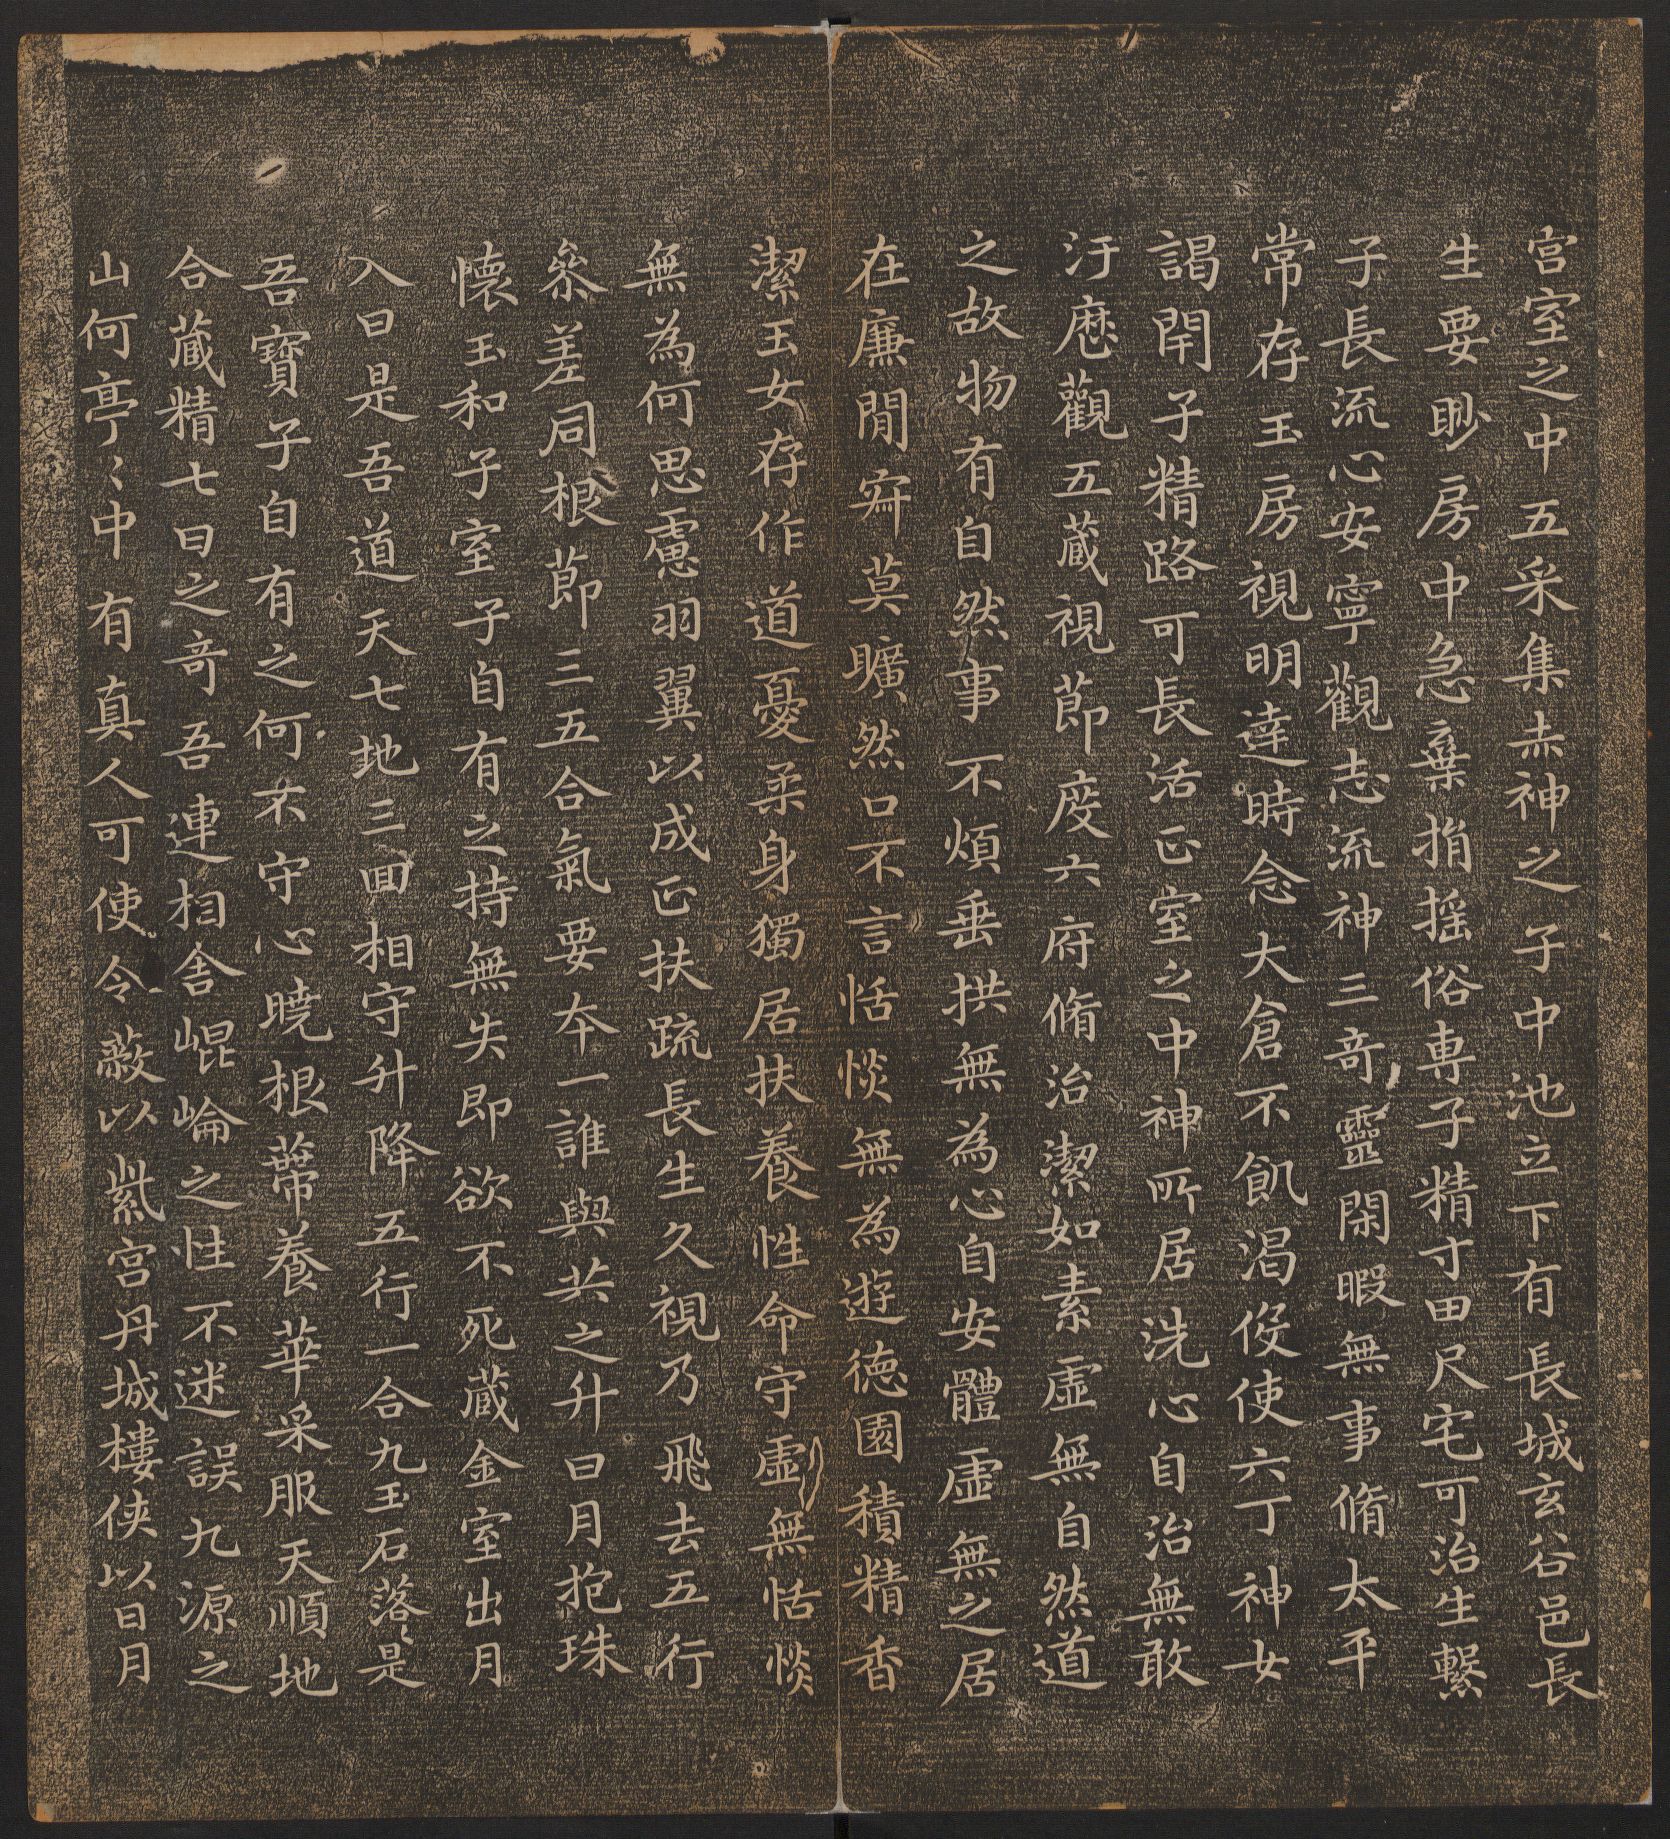 宮室之中五采集赤神之子中池立下有長城玄谷邑長
生要眇房中急棄捐搖俗專子精寸田尺宅可治生繫
子長流心安寧觀志流神三奇靈閑暇無事脩太平
常存玉房視明達時念大倉不飢渴役使六丁神女
謁閇子精路可長活正室之中神所居洗心自治無敢
汙歷觀五藏視節度六府脩治潔如素虛無自然道
之故物有自然事不煩垂拱無為心自安體虛無之居
在廉閒寂莫曠然口不言恬惔無為遊德園積精香
潔玉女存作道憂柔身獨居扶養性命守虛無恬惔
無為何思慮羽翼以成正扶疏長生久視乃飛去五行
參差同根節三五合氣要本一誰與共之升日月抱珠
懷玉和子室子自有之持無失即欲不死藏金室出月
入日是吾道天七地三回相守升降五行一合九玉石落〻是
吾寶子自有之何不守心曉根蒂養華采服天順地
合藏精七日之奇吾連相舍崐崘之性不迷誤九源之
山何亭〻中有真人可使令蔽以紫宮丹城樓俠以日月